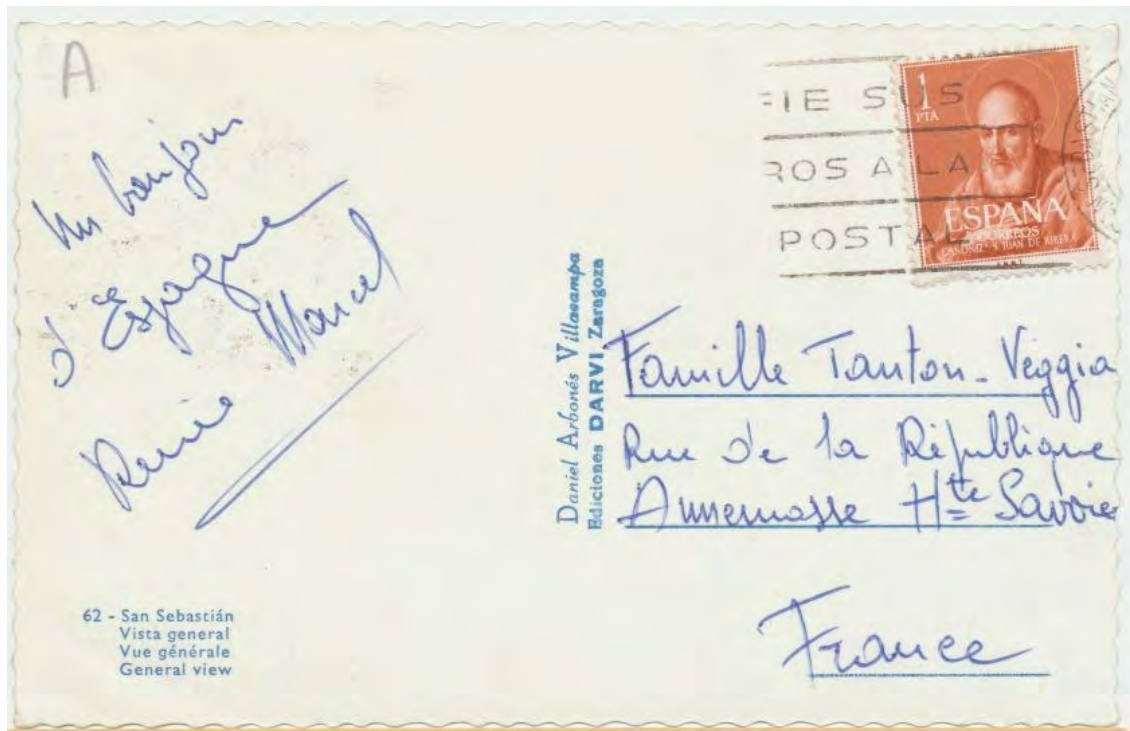 A
Un bonjour
d'Espagne
Renée Marcel
62 - San Sebastián
Vista general
Vue générale
General view
Daniel Arbonés Villacampa
Ediciones DARVI, Zaragoza
FIE SUS
ROS A LA
POSTAL
1
PTA
ESPAÑA
CORREOS
CANONIZ. S. JUAN DE RIBERA
Famille Tanton-Veggia
Rue de la République
Annemasse Hte Savoie
France